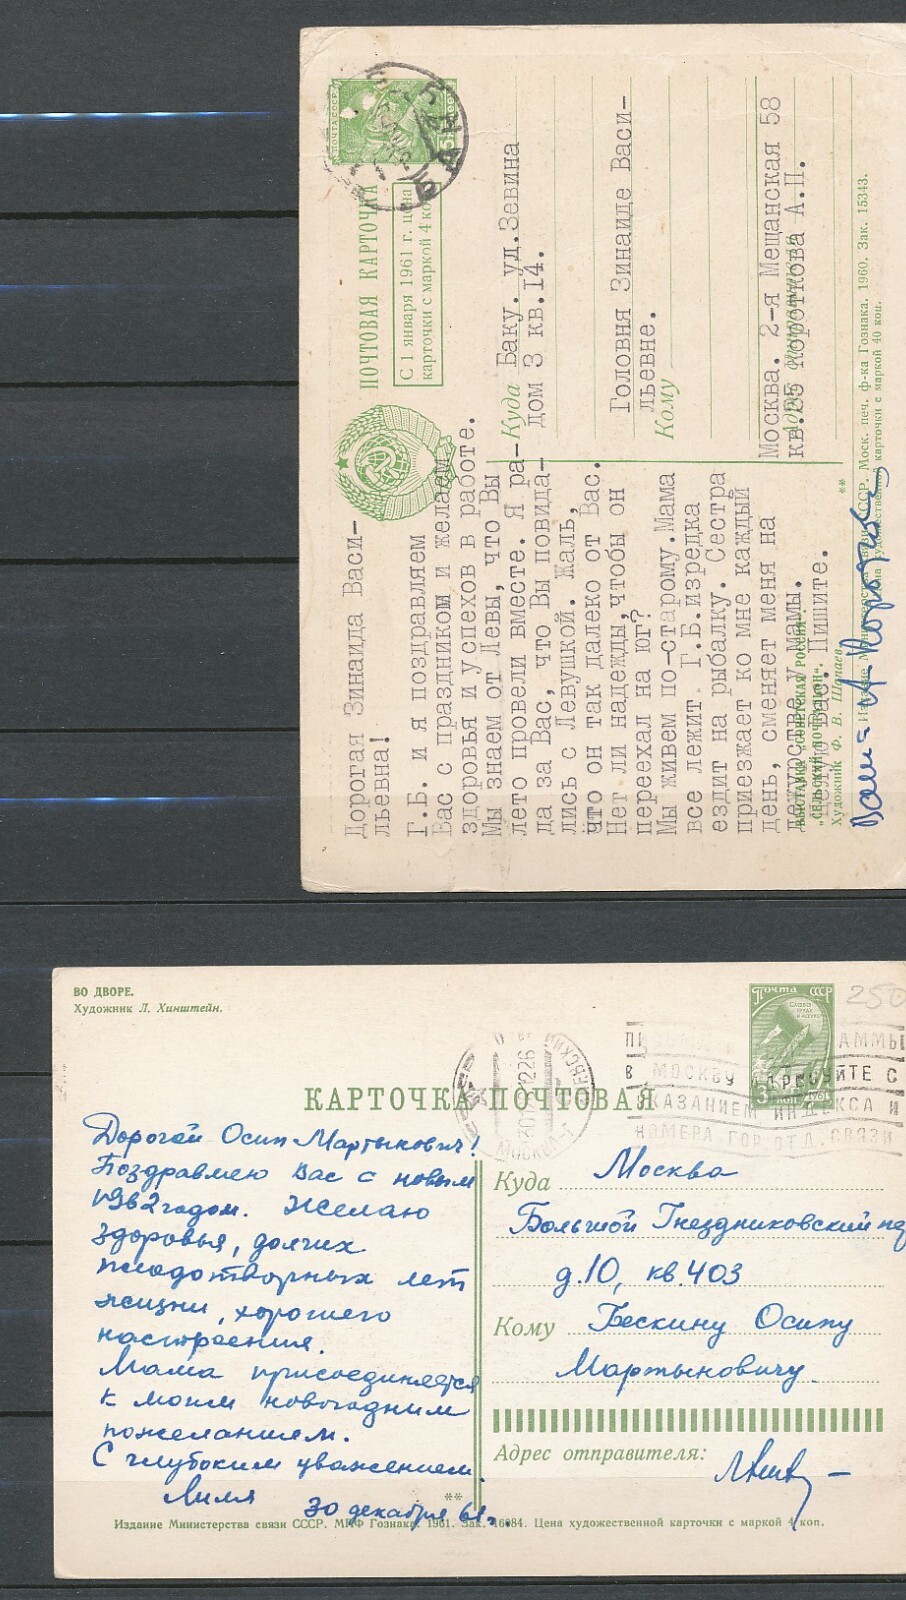 ПОЧТОВАЯ КАРТОЧКА
С 1 января 1961 г. цена
карточки с маркой 4 коп
ПОЧТА СССР
Дорогая Зинаида Васи-
льевна!
Г.Б. и я поздравляем
Вас с праздником и желаем
здоровья и успехов в работе.
Мы знаем от Левы, что Вы
лето провели вместе. Я ра-
да за Вас, что Вы повида-
лись с Левушкой. Жаль,
что он так далеко от Вас.
Нет ли надежды, чтобы он
переехал на юг?
Мы живем по-старому. Мама
все лежит. Г.Б. изредка
ездит на рыбалку. Сестра
приезжает ко мне каждый
день, сменяет меня на
дежурстве у мамы.
Вас. Пишите.
Ваша А Короткова
Куда Баку. ул. Зевина
дом 3 кв.14.
Головня Зинаиде Васи-
льевне.
Кому
Москва. 2-я Мещанская 58
кв.25 Короткова А.П.
Адрес отправителя
ВЫСТАВКА „СОВЕТСКАЯ РОССИЯ“.
„СЕЛЬСКИЙ ПОЧТАЛЬОН“.
Художник Ф. В. Шапаев
Издание Министерства связи СССР. Моск. печ. ф-ка Гознака. 1960. Зак. 15343.
Цена художественной карточки с маркой 40 коп.
ВО ДВОРЕ.
Художник Л. Хинштейн.
КАРТОЧКА ПОЧТОВАЯ
Почта СССР
Слава
труду
и науке
3 коп 1961
250
МОСКВА
В МОСКВУ АДРЕСУЙТЕ С
УКАЗАНИЕМ ИНДЕКСА И
НОМЕРА ГОР.ОТД. СВЯЗИ
Дорогой Осип Мартынович!
Поздравляю Вас с новым
1962 годом. Желаю
здоровья, долгих
плодотворных лет
жизни, хорошего
настроения.
Мама присоединяется
к моим новогодним
пожеланием.
С глубоким уважением.
Лиля
30 декабря 61г.
Куда Москва
Большой Гнездниковский пер
д.10, кв.403
Кому Бескину Осипу
Мартыновичу.
Адрес отправителя:
Издание Министерства связи СССР. МПФ Гознака. 1961. Зак. 16084. Цена художественной карточки с маркой 4 коп.